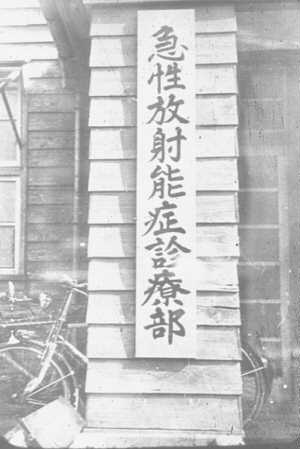 急性放射能症診療部